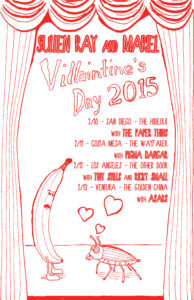 SULLEN RAY AND MABEL
Villaintine's
Day 2015
2/10 - SAN DIEGO - THE HIDEOUT
WITH THE PAPER THINS
2/11 - COSTA MESA - THE WAYFARER
WITH
2/12 - LOS ANGELES - THE OTHER DOOR
WITH TINY STILLS AND RICKY SMALL
2/13 - VENTURA - THE GOLDEN CHINA
WITH